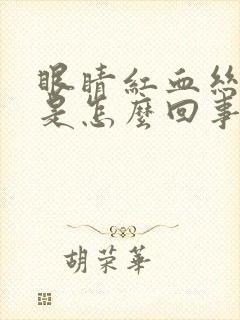 眼睛紅血絲
是怎麼回事
胡荣華